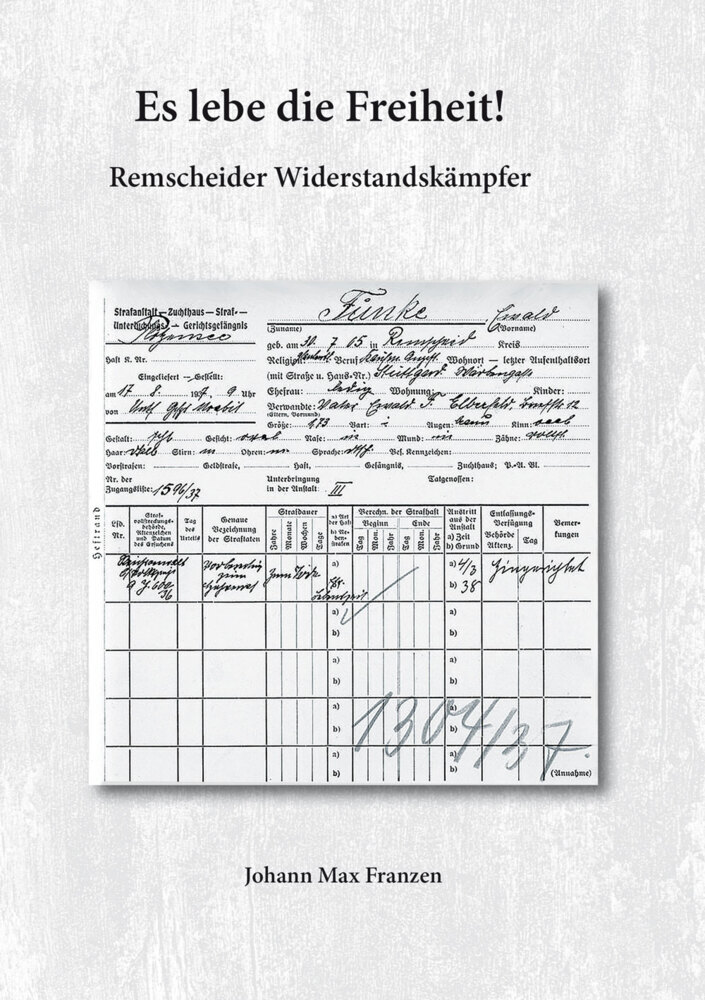 Es lebe die Freiheit!
Remscheider Widerstandskämpfer
Strafanstalt — Zuchthaus — Straf- —
Untersuchungs- — Gerichtsgefängnis
Plötzensee
Funke Ewald
(Zuname) (Vorname)
geb. am 30. 7 05 in Remscheid Kreis
Haft K. Nr.
Religion Beruf Wohnort — letzter Aufenthaltsort
(mit Straße u. Haus-Nr.) Stuttgard
Eingeliefert — Gestellt:
am 17. 8. 1937, 9 Uhr
von
Ehefrau: ledig Wohnung: Kinder:
Verwandte: Vater Ewald F. Elberfeld,
(Eltern, Vormund)
Größe: 173 Bart: - Augen: Kinn: oval
Gestalt: Gesicht: oval Nase: Mund: Zähne:
Haar: Stirn: Ohren: Sprache: Bes. Kennzeichen:
Vorstrafen: Geldstrafe, Haft, Gefängnis, Zuchthaus; P.-A. Bl.
Nr. der
Zugangsliste: 1596/37
Unterbringung
in der Anstalt III
Tatgenossen:
Heftrand
Lfd. Nr.
Strafvollstreckungsbehörde, Aktenzeichen und Datum des Ersuchens
Tag des Urteils
Genaue Bezeichnung der Straftaten
Strafdauer
Jahre Monate Wochen Tage
Berechn. der Strafhaft
Beginn Ende
Tag Mon. Jahr Tag Mon. Jahr
Austritt aus der Anstalt
a) Zeit
b) Grund
Entlassungs-Verfügung
Behörde Aktenz. Tag
Bemerkungen
Vorbereitung zum Hochverrat
zum Tode
a) 4/3
b) 38
Hingerichtet
a) a)
b) b)
a) a)
b) b)
a) a)
b) b)
a) a)
b) b)
1304/37.
(Annahme)
Johann Max Franzen